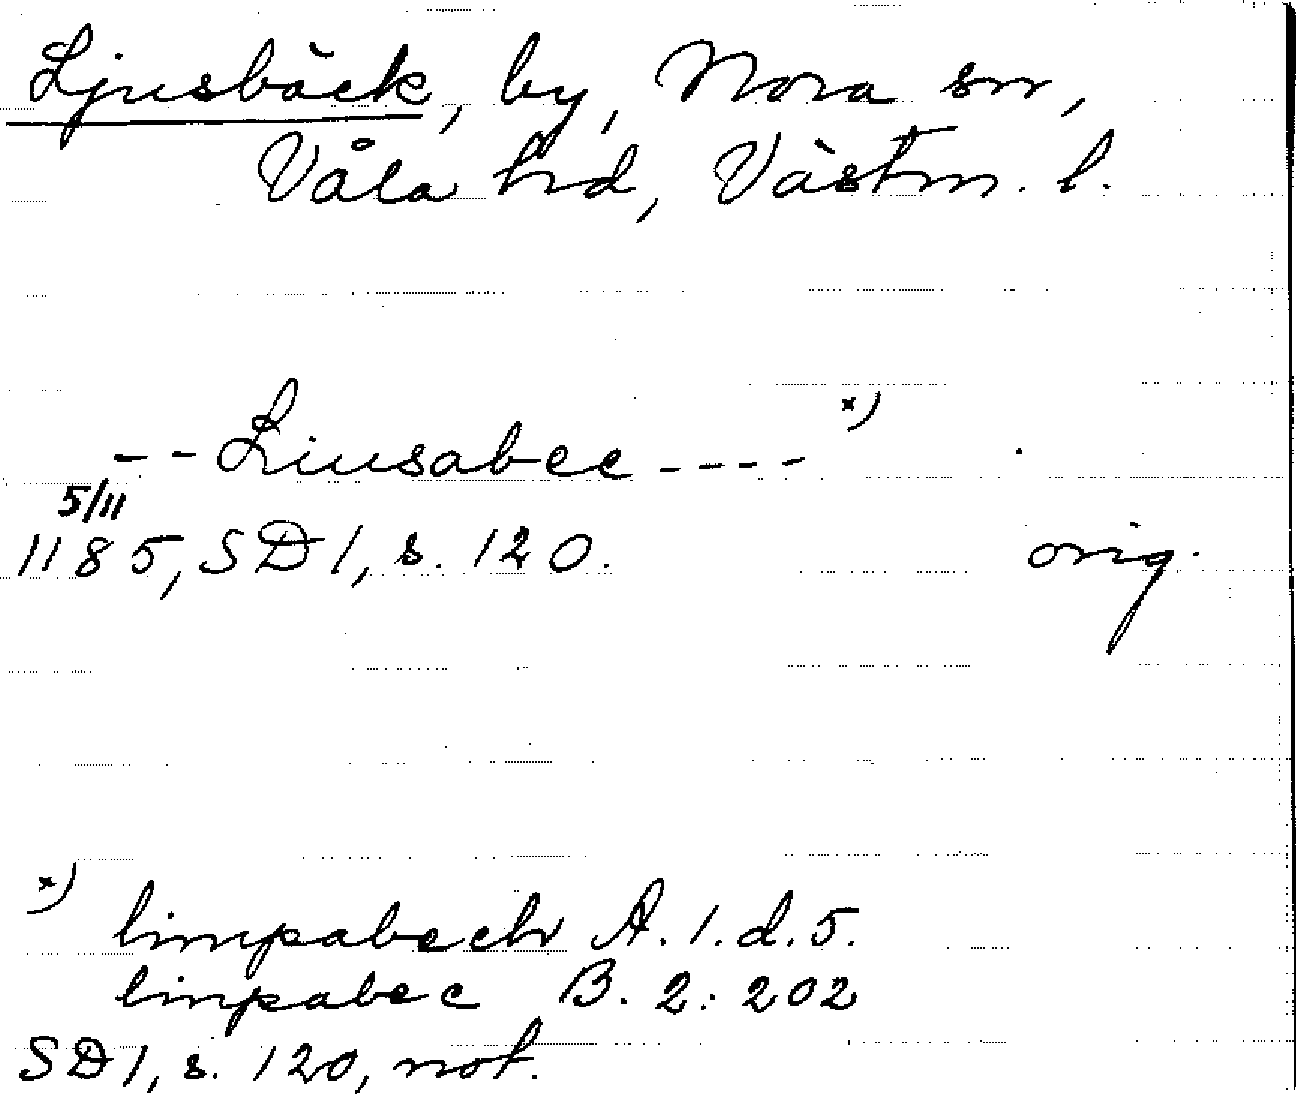 Ljusbäck, by, Nora sn,
Våla hd, Västm. l.
-- Liusabec ---- x)
5/11
1185, SD 1, s. 120. orig.
x)
limpabech A. 1. d. 5.
limpabec B. 2: 202
SD 1, s. 120, not.